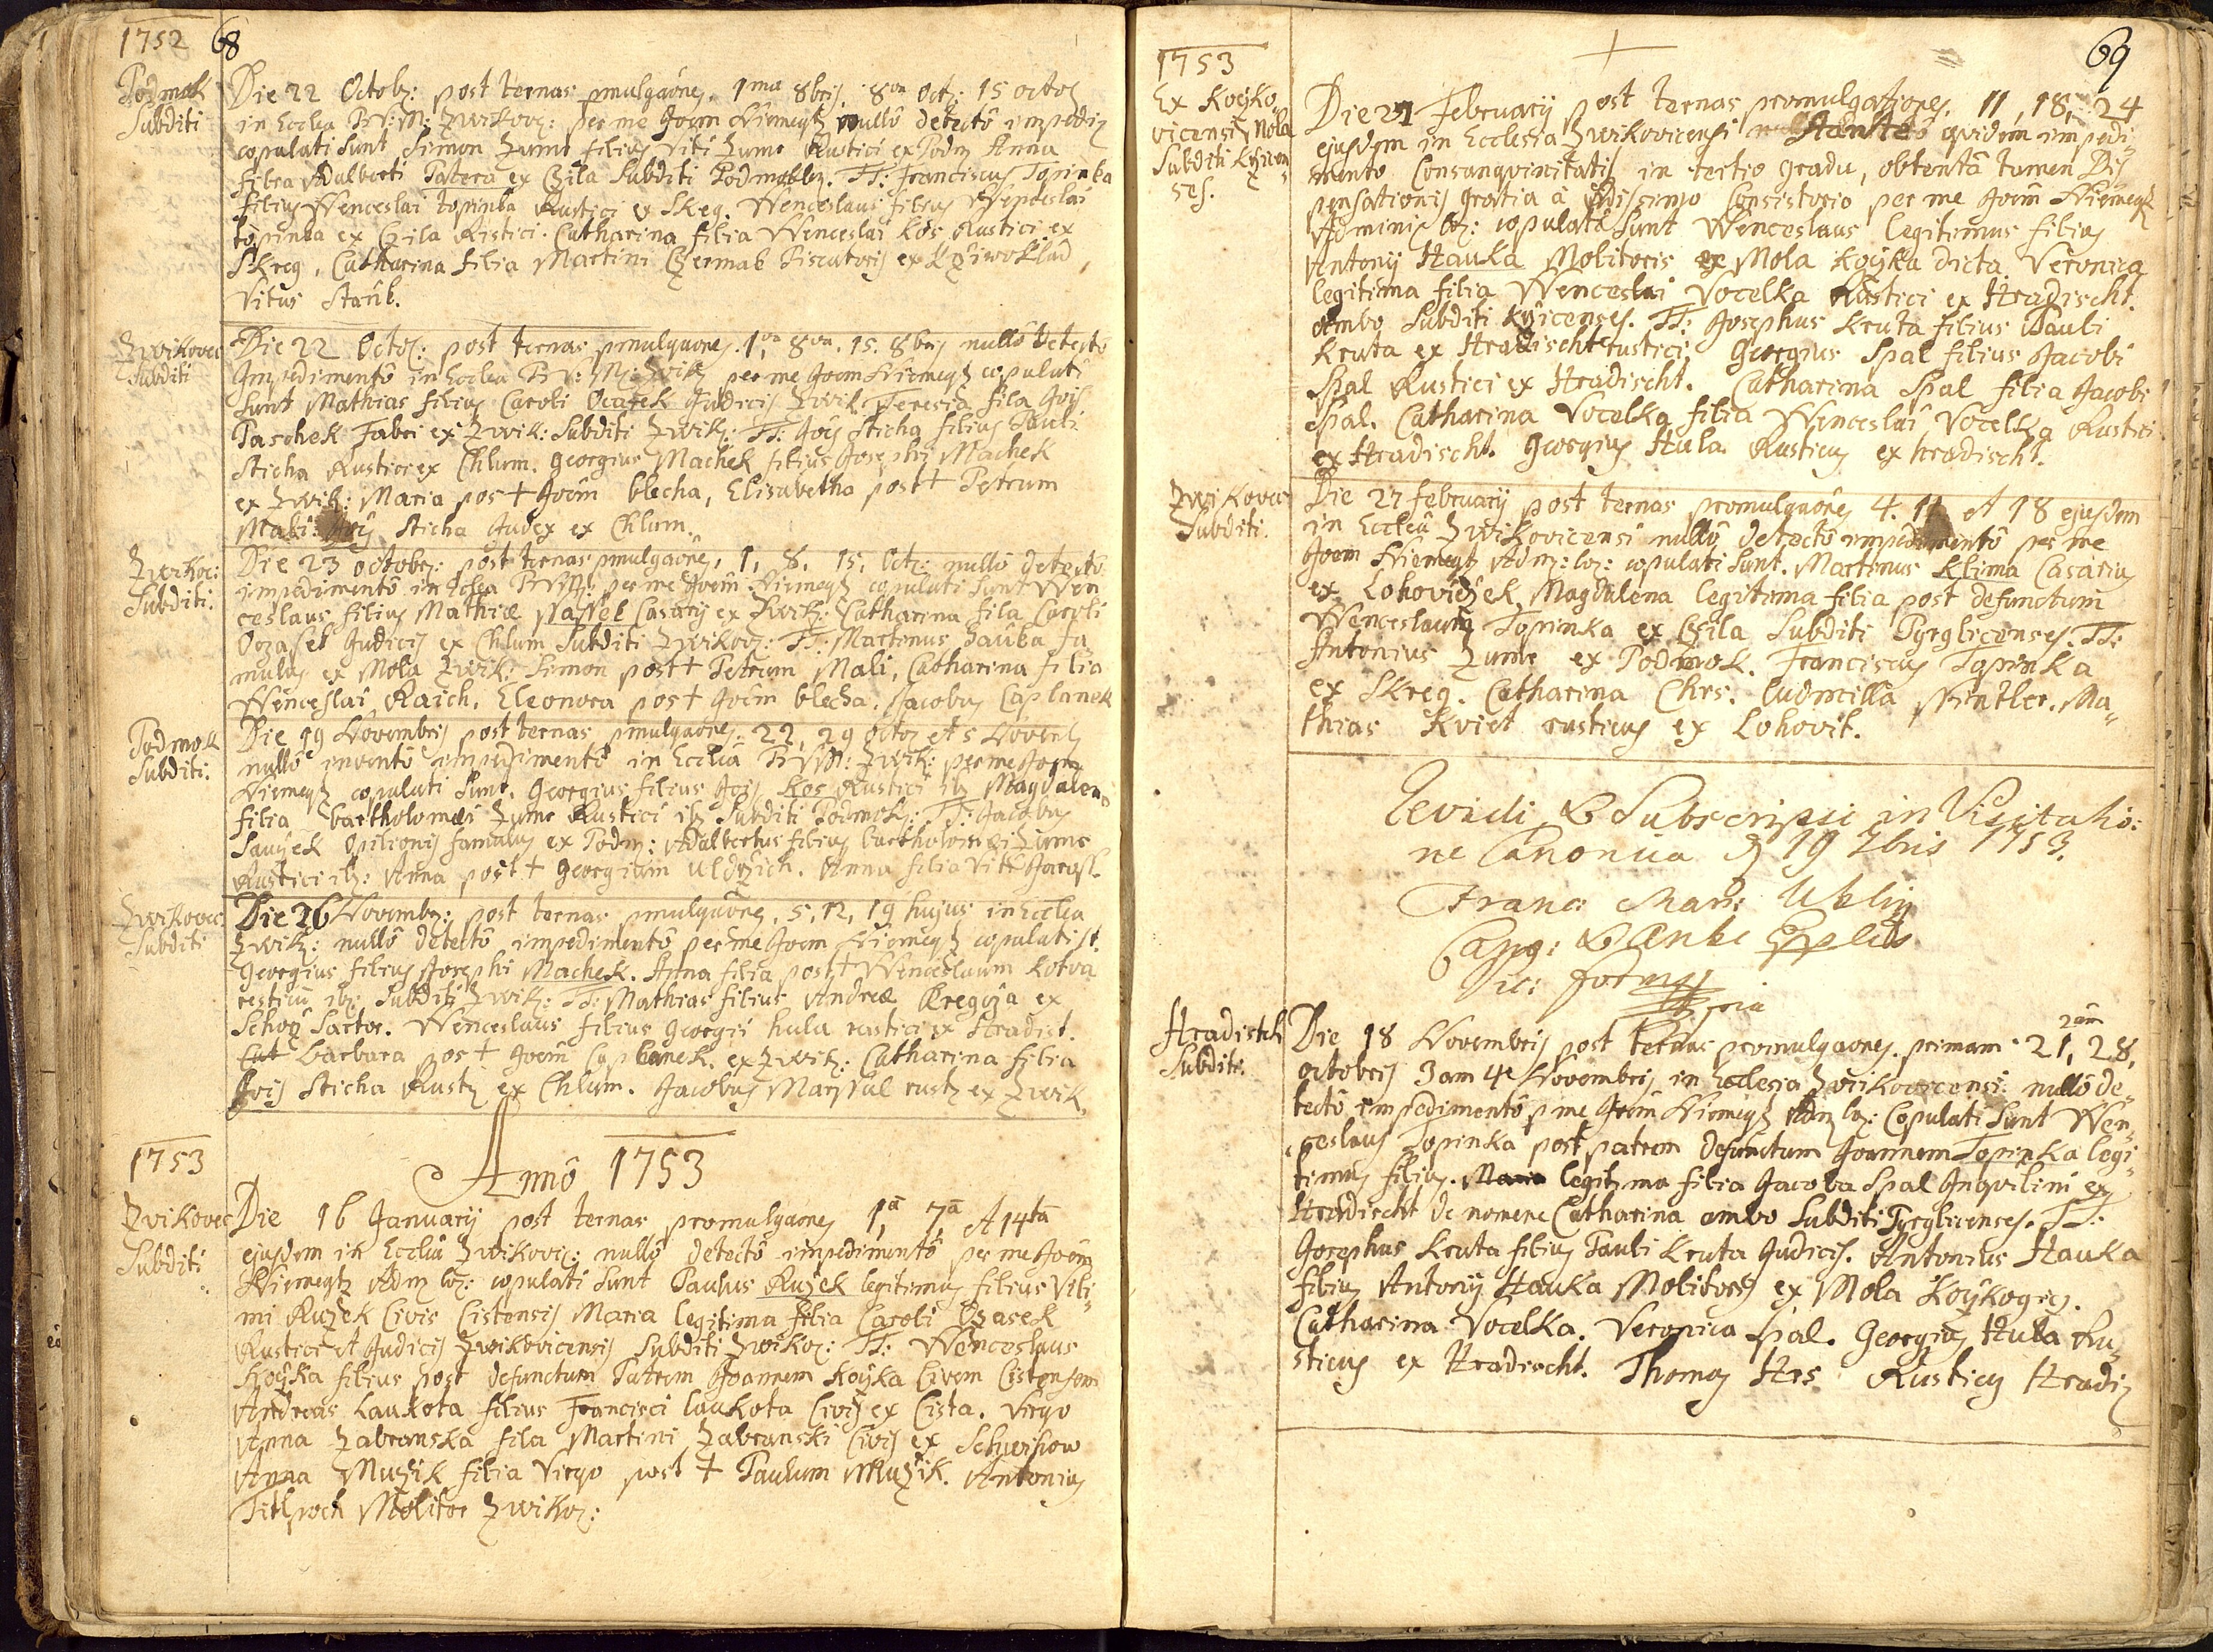 1752 68
Podmok
Subditi
Die 22 Octobr: post ternas pmulgaones. 1ma 8bris. 8va Oct: 15 octob
in Ecclia BV:M: Zwikov: per me Joem Niemeyz nullô detectô impedim
copulati Sunt Simon Zume filius Viti Zume Rustici ex Podm Anna
filia Adalberti Patera ex Czila Subditi Podmoklen. TT: Franciscus Topinka
filius Wenceslai topinka Rustici ex Skreg. Wenceslaus filius Wenceslai
topinka ex Czila Ristici. Catharina filia Wenceslai Kos Rustici ex
Skreg, Catharina filia Martini Czermak Piscatoris ex Krziwoklad,
Vitus Staub.
Zwikovec
Subditi
Die 22 Octob: post ternas pmulgaones. 1va 8va. 15. 8bris nullô detecto
Impedimentô in Ecclea BV:M: Zwik per me Joem Niemeyz copulati
Sunt Mathias filius Caroli Ocasek Judicis Zwik Teresia fila Jois
Paschek Fabri ex Zwik: Subditi Zwik: TT: Jois Sticha filius Pauli
Sticha Rustici ex Chlum. Georgius Machek filius Josephi Machek
ex Zwik: Maria post + Joem blecha, Elisabetha post + Petrum
Mali: Jois Sticha Judex ex Chlum.
Zwikov:
Subditi.
Die 23 octobr: post ternas pmulgaone, 1, 8, 15, Octr: nullô detectô
impedimentô in Eclea BVM: per me Joem Niemeyz copulati Sunt Wen
ceslaus filius Mathiæ Wassel Casarij ex Zwik: Catharina fila Caroli
Oczasek Judicis ex Chlum Subditi Zwikov: TT: Martinus Hauka fa
mulus ex Mola Zwik: Simon post + Petrum Mali, Catharina filia
Wenceslai Raich, Eleonora post Joem blecha. Jacobus Caplanek
Podmok
Subditi.
Die 19 Novembris post ternas pmulgaones. 22, 29 octob et 5 Novemb
nullô inventô impedimentô in Ecclia BVM: Zwik: per me Joem
Niemeyz copulati Sunt. Georgius filius Jois Kos Rustici ib Magdalena
filia bartholomæi Zume Rustici ib Subditi Podmok: TT: Jacobus
Sauyek Opilionis famulus ex Podm: Adalbertus filius bartholomæi Zume
Rustici ib: Anna post + Georgium Uldrzich. Anna filia Viti Jarosl.
Zwikovec
Subditi
Die 26 Novembr: post ternas pmulgaones, 5, 12, 19 hujus in Ecclea
Zwik: nullô detectô impedimentô per me Joem Niemeyz copulati st.
Georgius filius Josephi Machek. Anna filia post + Wenceslaum Kotva
resticu ib: Subditi Zwik: TT: Mathias filius Andreæ Kregcza ex
Schoz Sartor. Wenceslaus filius Georgii hula rustici ex Hradist.
barbara post Joem Caplanek. ex Zwik: Catharina filia
Jois Sticha Rust ex Chlum. Jacobus Maryssal rust ex Zwik.
1753
Annô 1753
Zwikovec
Subditi
Die 16 Januarij post ternas promulgaones 1,a 7,a et 14ta
ejusdem in Ecclia Zwikovic: nullô detectô impedimentô per me Joem
Niemeytz Adm loz: copulati Sunt Paulus Ruzek legitimus filius Vili
mi Ruzek Civis Cistensis Maria legitima filia Caroli Ozasek
Rustici et Judicis Zwikovicensis Subditi Zwikov: TT: Wenceslaus
Koyka filius post defunctum Patrem Joannem Koyka Civem Cistensem
Andreas Laukota filius Francisci laukota Civis ex Cista. Virgo
Anna Zabranska fila Martini Zabranski Civis ex Schwihow
Anna Muzik filia Virgo post + Paulum Muzik. Antonius
Titlpoch Molitor Zwikov:
69
1753
Ex Koyko
vicensi Mola
Subditi Krzicen
ses.
Die 27 February post ternas promulgationes. 11, 18, 24
ejusdem in Ecclesia Zwikovicensi Stante quidem impedi
mento Consanguinitatis in tertio gradu, obtentâ tamen Dis
pensationis gratia à Rdissimo Consistorio per me Joem Niemeyz
Adminis loz: copulati Sunt Wenceslaus legitimus filius
Antonij Hauka Molitoris ex Mola Koyka dicta. Veronica
legitima filia Wenceslai Vocelka Rustici ex Hradischt.
Ambo Subditi Krzicenses. TT: Josephus Kruta filius Pauli
Kruta ex Hradischt rustici. Georgius Spal filius Jacobi
Spal Rustici ex Hradischt. Catharina Spal filia Jacobi
Spal. Catharina Vocelka filia Wenceslai Vocelka Rustici
ex Hradischt. Georgius Hula Rusticus ex hradischt.
Zwikovec
Subditi.
Die 27 february post ternas promulgaônes 4. 11 et 18 ejusdem
in Eccleâ Zwikovicensi nullô detectô impedimentô per me
Joem Niemeyz Adm: loz: copulati Sunt. Martinus Klima Casarius
ex Lohoviczek, Magdalena legitima filia post defunctum
Wenceslaum Topinka ex Czila Subditi Pyrglicenses. TT:
Antonius Zume ex Podmok. Franciscus Topinka
ex Skreg. Catharina Chrs. Ludmilla Wintler. Ma
thias Kviet rusticus ex Lohovit.
Revidi & Subscripsi in Visitatio:
ne Canonica d 19 7bris 1753.
Franc: Mar:
Hradistch
Subditi.
Die 18 Novembris post ternas promulgaones. primam 21, 2am 28,
octobris 3am 4e Novembris in Ecclesia Zwikovicensi nullô de
tectô impedimentô p me Joem Niemeyz Adm loz: Copulati Sunt Wen
ceslaus Topinka post patrem defunctum Joannem Topinka legi
timus filius. Maria legitima filia Jacoba Spal Inquilini ex
Hradischt de nomine Catharina ambo Subditi Pyrglicenses. TT:
Josephus Kruta filius Pauli Kruta Judicis. Antonius Hauka
filius Antonij Hauka Molitoris ex Mola Koykog
Catharina Vocelka. Veronica Spal. Georgius Hula Ru
sticus ex Hradischt. Thomas Hrs Rusticus Hradis